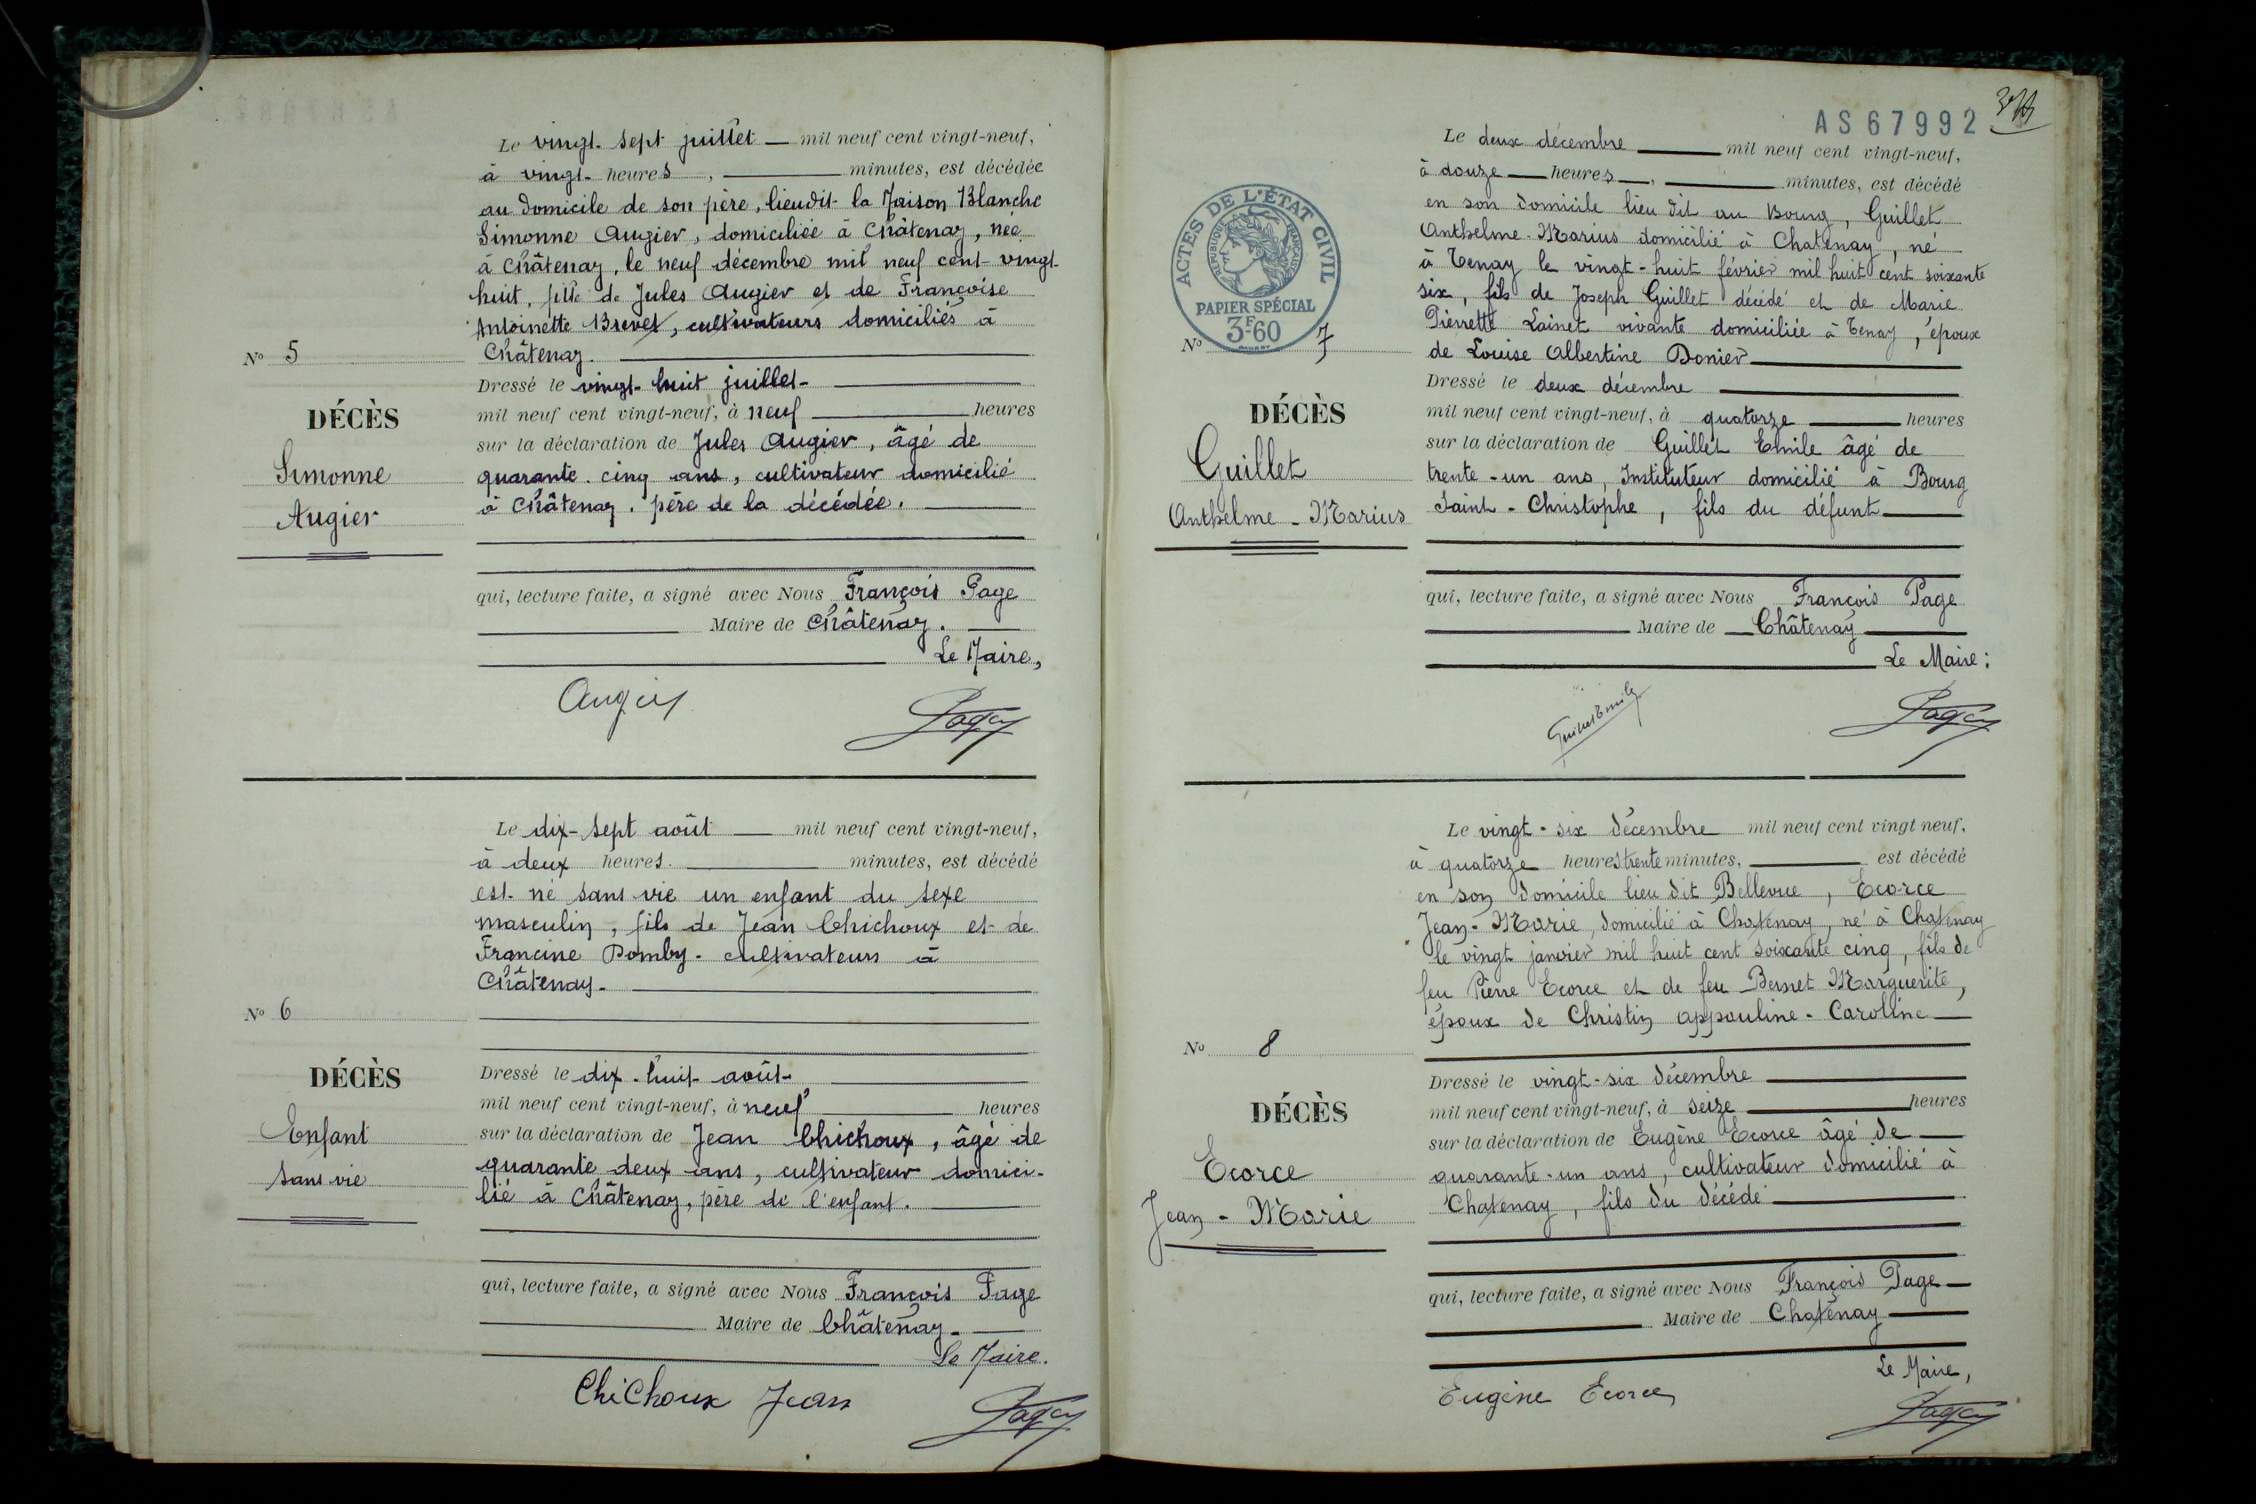 Le vingt-sept juillet mil neuf cent vingt-neuf,
à vingt heures, minutes, est décédée
au domicile de son père, lieudit la Maison Blanche
Simonne Augier, domiciliée à Châtenay, née
à Châtenay, le neuf décembre mil neuf cent vingt-
huit, fille de Jules Augier et de Françoise
Antoinette Brevet, cultivateurs domiciliés à
Châtenay.
No 5
Dressé le vingt-huit juillet
DÉCÈS
mil neuf cent vingt-neuf, à neuf heures
sur la déclaration de Jules Augier, âgé de
Simonne
quarante-cinq ans, cultivateur domicilié
Augier
à Châtenay, père de la décédée.
qui, lecture faite, a signé avec Nous François Page
Maire de Châtenay.
Le Maire,
Augier
Page
Le dix-sept août mil neuf cent vingt-neuf,
à deux heures minutes, est décédé
est né sans vie un enfant du sexe
masculin, fils de Jean Chichoux et de
Francine Pomby. cultivateurs à
Châtenay.
No 6
DÉCÈS
Dressé le dix-huit août
mil neuf cent vingt-neuf, à neuf heures
Enfant
sur la déclaration de Jean Chichoux, âgé de
sans vie
quarante deux ans, cultivateur domici-
lié à Châtenay, père de l'enfant.
qui, lecture faite, a signé avec Nous François Page
Maire de Châtenay.
Le Maire.
Chichoux Jean
Page
AS67992
ACTES DE L'ÉTAT CIVIL
RÉPUBLIQUE FRANÇAISE
PAPIER SPÉCIAL
3F.60
Le deux décembre mil neuf cent vingt-neuf,
à douze heures, minutes, est décédé
en son domicile lieu dit au Bourg, Guillet
Anthelme-Marius domicilié à Chatenay, né
à Tenay le vingt-huit février mil huit cent soixante
six, fils de Joseph Guillet décédé et de Marie
Pierrette Lainet vivante domiciliée à Tenay, époux
No 7
de Louise Albertine Donier
Dressé le deux décembre
DÉCÈS
mil neuf cent vingt-neuf, à quatorze heures
sur la déclaration de Guillet Emile âgé de
Guillet
trente-un ans, Instituteur domicilié à Bourg
Anthelme-Marius
Saint-Christophe, fils du défunt
qui, lecture faite, a signé avec Nous François Page
Maire de Châtenay
Le Maire:
Guillet Emile
Page
Le vingt-six décembre mil neuf cent vingt neuf,
à quatorze heures trente minutes, est décédé
en son domicile lieu dit Bellevue, Ecorce
Jean-Marie, domicilié à Chatenay, né à Chatenay
le vingt janvier mil huit cent soixante cinq, fils de
feu Pierre Ecorce et de feu Bernet Marguerite,
époux de Christin appouline-Caroline
No 8
Dressé le vingt-six décembre
DÉCÈS
mil neuf cent vingt-neuf, à seize heures
sur la déclaration de Eugène Ecorce âgé de
Ecorce
quarante-un ans, cultivateur domicilié à
Jean-Marie
Chatenay, fils du décédé
qui, lecture faite, a signé avec Nous François Page
Maire de Chatenay
Le Maire,
Eugène Ecorce
Page